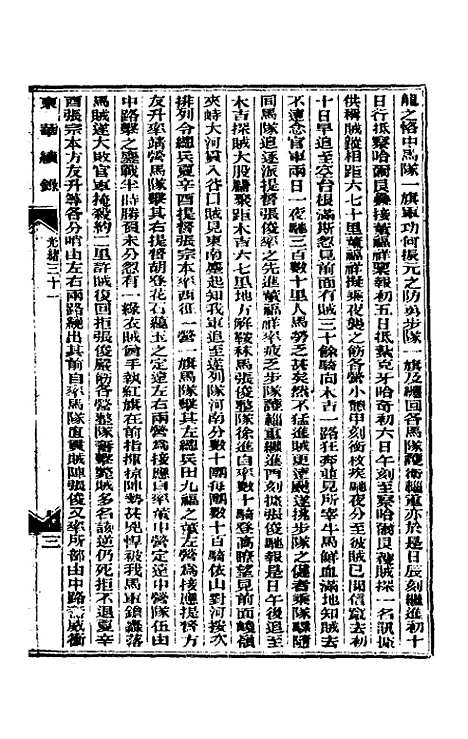 龍之恪中馬隊一旗軍功何振元之防勇步隊一旗及纏回各馬隊護衛輜重亦於是日辰刻繼進初十
日行抵察哈爾艮接據董福祥稟報初五日抵紮克牙哈奇初六日午刻至察哈爾艮獲賊探一名訊據
供稱賊蹤相距六七十里董福祥擬乘夜襲之飭各營小憩申刻銜枚疾馳夜分至彼賊已聞信竄去初
十日早追至空台根滿斯忽見前面有賊三十餘騎向木吉一路狂奔並見所宰牛馬鮮血滿地知賊去
不遠念官軍兩日一夜馳三百數十里人馬勞乏甚矣然不猛進賊更遠颺遂挑步隊之健者乘騾隨
同馬隊追逐派提督張俊率之先進董福祥率疲乏步隊護輜重繼進酉刻據張俊馳報是日午後追至
木吉探賊大股屯聚距木吉六七里地方解鞍秣馬張俊整隊徐進自率數十騎登高瞭望見前面崎嶺
夾峙大河貫入谷口賊見東南塵起知我軍追至遂列隊河南分數十團每團數十百騎依山對河按次
排列令總兵夏辛酉提督張宗本率西征一營一旗馬隊擊其左總兵田九福之董左營為接應提督方
友升率靖營馬隊擊其右提督胡登花石纏玉之定遠左右兩營為接應自率董中營定遠中營隊伍由
中路擊之鏖戰半時勝負未分忽有一綠衣賊酋手執紅旗在前指揮掠陣甚兇悍被我馬軍鎗轟落
馬賊遂大敗官軍掩殺約二里許賊復回拒張俊嚴飭各營整隊奮擊斃賊多名該逆仍死拒不退夏辛
酉張宗本方友升等各分哨由左右兩路繞出其前自率馬隊直貫賊陣張俊又率所部由中路奮威衝
東華續錄
光緒三十一
三